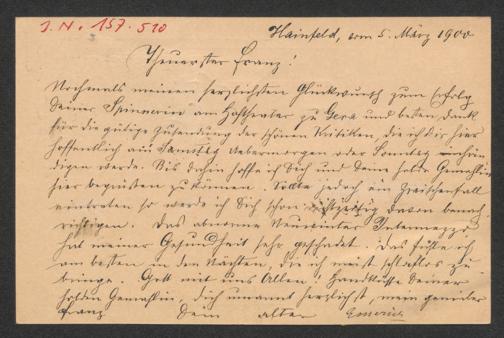 J. N. 157.510
Hainfeld, am 5. März 1900
Theuerster Franz!
Nochmals meinen herzlichsten Glückwunsch zum Erfolg
Deiner "Spinnerin" am Hoftheater zu Gera und besten Dank
für die gütige Zusendung der schönen Kritiken, die ich dir hier
hoffentlich am Samstag Uebermorgen oder Sonntag einhän-
digen werde. Bis dahin hoffe ich Dich und Deine holde Gemahlin
hier begrüßen zu können. Sollte jedoch ein Zwischenfall
eintreten so werde ich Dich schon rechtzeitig davon benach-
richtigen. Das abnorme Neuwinter Intermezzo
hat meiner Gesundheit sehr geschadet. Das fühle ich
am besten in den Nächten, die ich meist schlaflos zu
bringe. Gott mit uns Allen, Handküsse Deiner
holden Gemahlin, Dich umarmt herzlichst, mein genialer
Franz Dein alter Emerich